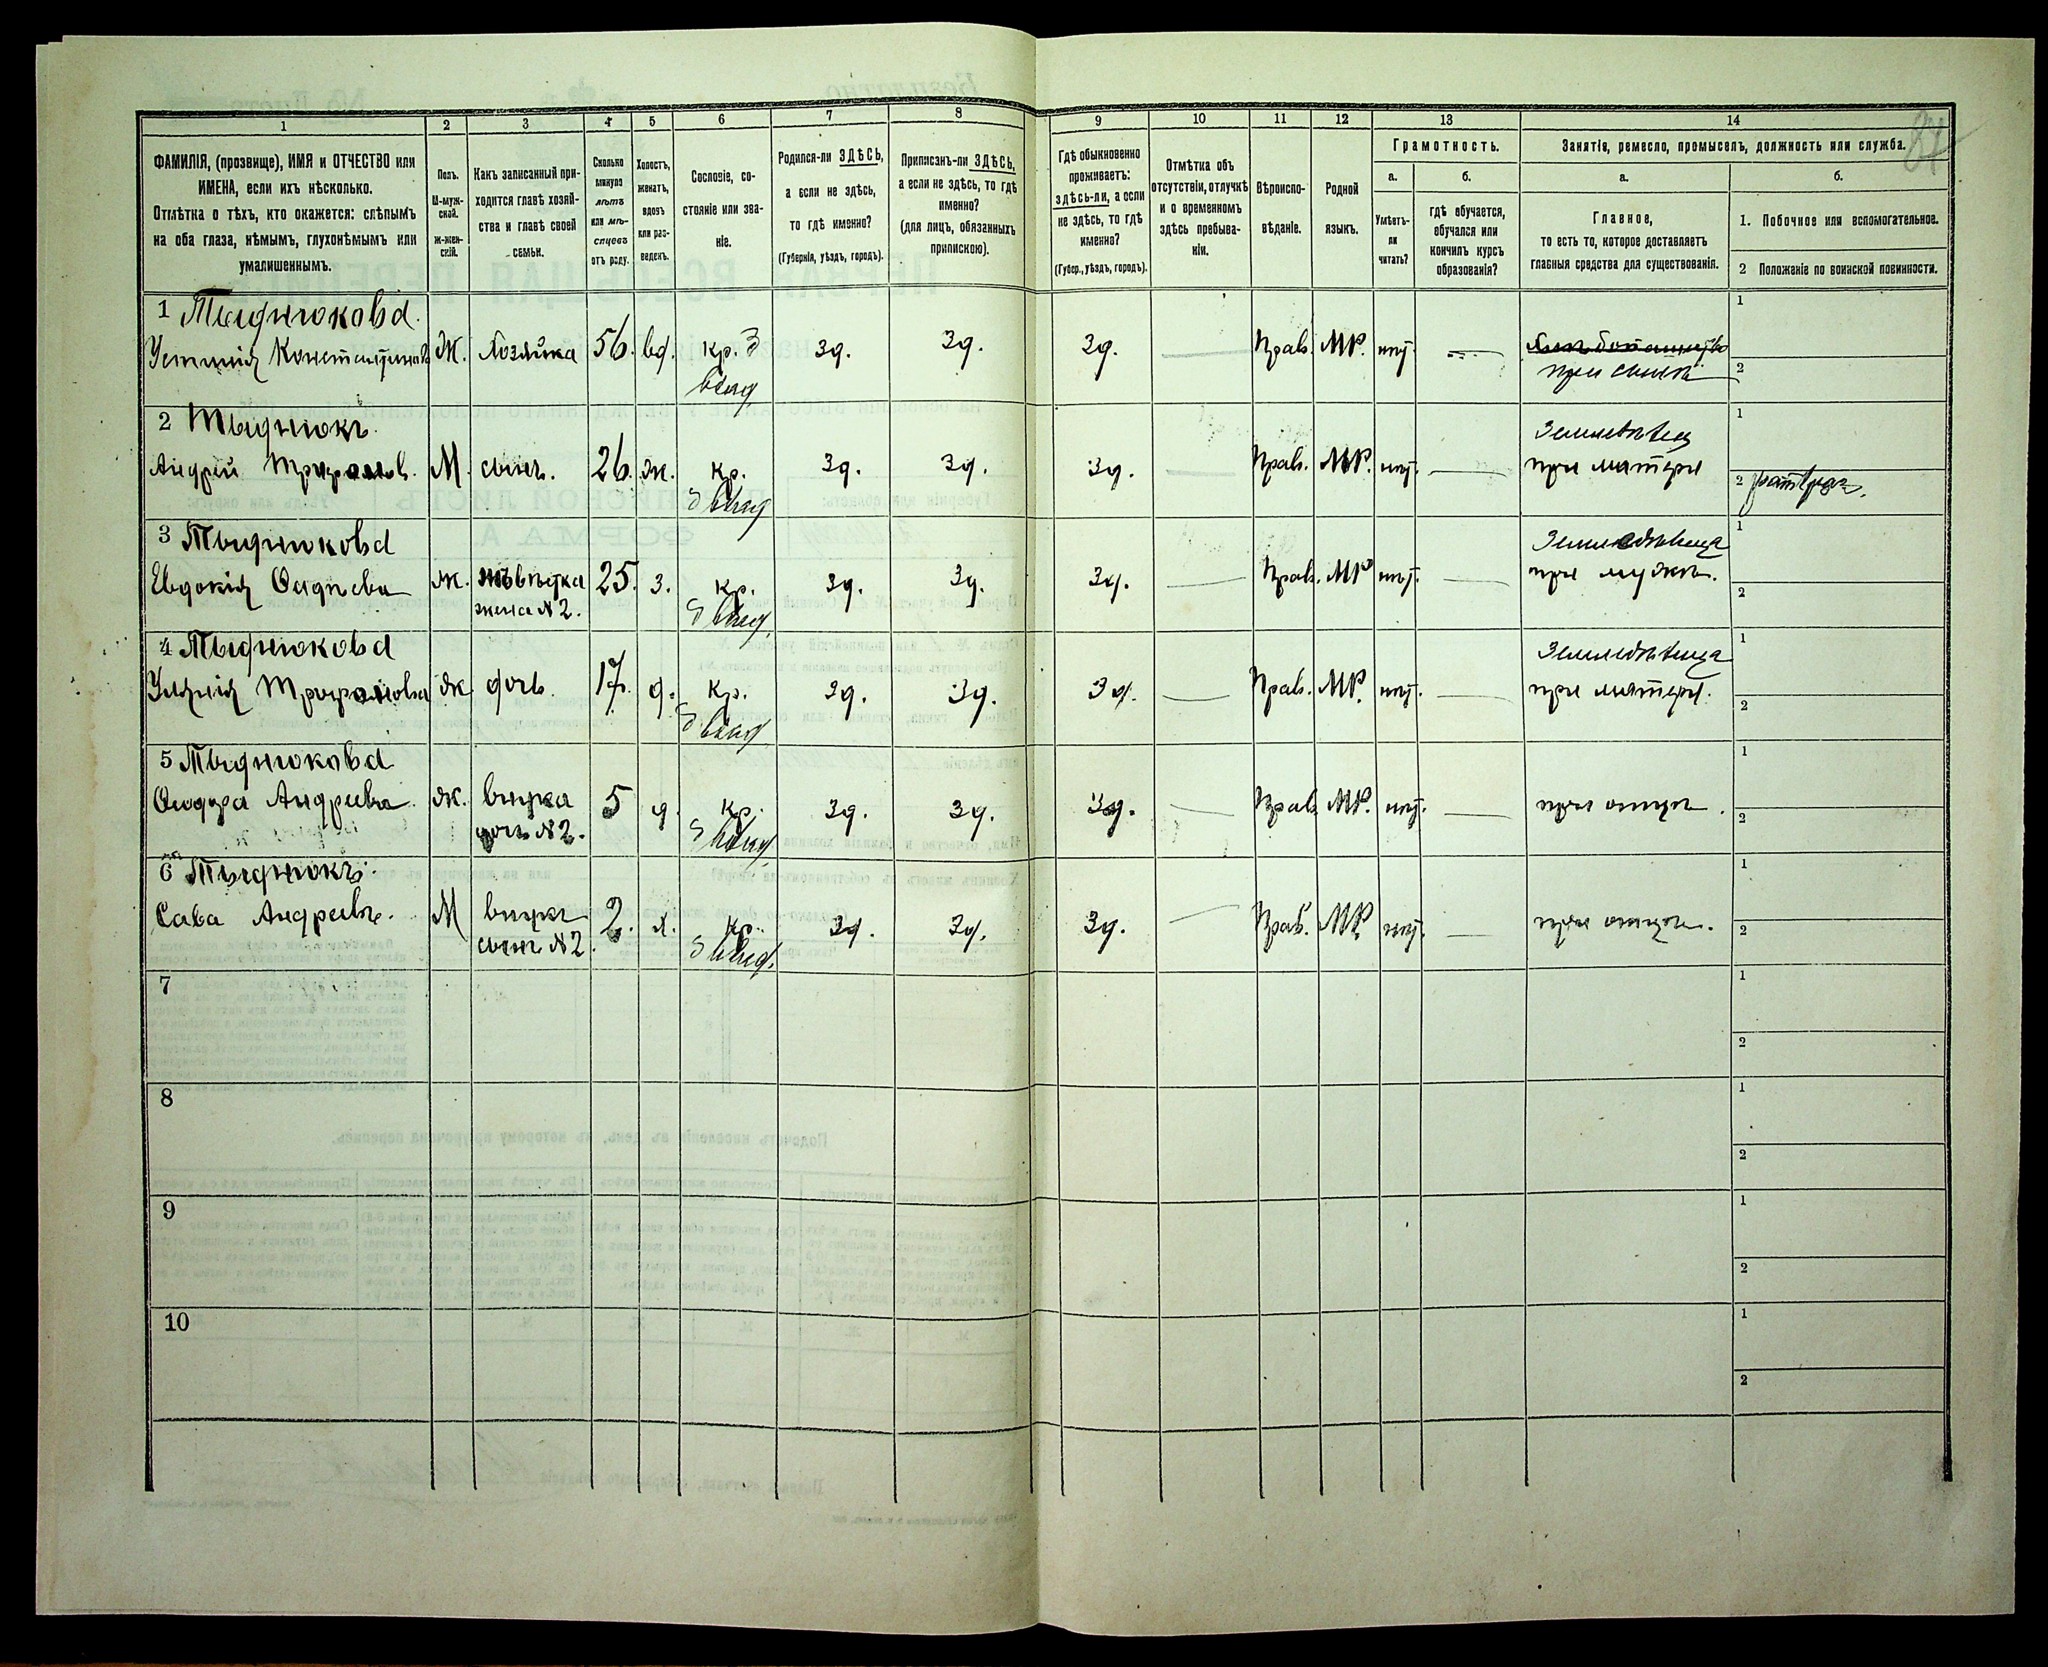 1 2 3 4 5 6 7 8 9 10 11 12 13 14
ФАМИЛІЯ, (прозвище), ИМЯ и ОТЧЕСТВО или
ИМЕНА, если ихъ нѣсколько.
Отмѣтка о тѣхъ, кто окажется: слѣпымъ
на оба глаза, нѣмымъ, глухонѣмымъ или
умалишеннымъ.
Полъ.
М-муж-
ской.
Ж-жен-
скій.
Какъ записанный при-
ходится главѣ хозяй-
ства и главѣ своей
семьи.
Сколько
минуло
лѣтъ
или мѣ-
сяцевъ
отъ роду.
Холостъ,
женатъ,
вдовъ
или раз-
веденъ.
Сословіе, со-
стояніе или зва-
ніе.
Родился-ли ЗДѢСЬ,
а если не здѣсь,
то гдѣ именно?
(Губернія, уѣздъ, городъ).
Приписанъ-ли ЗДѢСЬ,
а если не здѣсь, то гдѣ
именно?
(для лицъ, обязанныхъ
припискою).
Гдѣ обыкновенно
проживаетъ:
здѣсь-ли, а если
не здѣсь, то гдѣ
именно?
(Губер., уѣздъ, городъ).
Отмѣтка объ
отсутствіи, отлучкѣ
и о временномъ
здѣсь пребыва-
ніи.
Вѣроиспо-
вѣданіе.
Родной
языкъ.
Грамотность.
а.
Умѣетъ-
ли
читать?
б.
гдѣ обучается,
обучался или
кончилъ курсъ
образованія?
Занятія, ремесло, промыселъ, должность или служба.
а.
Главное,
то есть то, которое доставляетъ
главныя средства для существованія.
б.
1. Побочное или вспомогательное.
2 Положеніе по воинской повинности.
87
1 Тыднюкова
Устинія Константинова Ж. Хозяйка 56. вд. кр. Зд. Зд. Зд. Прав. МР. нѣт.
при сынѣ
1
2
2 Тыднюкъ
Андрей Трофимов. М. сынъ. 26. ж. кр. Зд. Зд. Зд. Прав. МР. нѣт.
Земледѣлец
при матери
1
2
3 Тыднюкова
Евдокія Ж. невѣстка
жена N 2. 25. з. кр. Зд. Зд. Зд. Прав. МР нѣт.
Земледѣлица
при мужѣ.
1
2
4 Тыднюкова
Трофимова Ж дочь. 17. д. кр. Зд. Зд. Зд. Прав. МР. нѣт.
Земледѣлица
при матери.
1
2
5 Тыднюкова
Андреева Ж. внука
дочь N 2. 5 д. кр. Зд. Зд. Зд. Прав. МР. нѣт. при отцѣ.
1
2
6 Тыднюкъ
Сава Андреевъ. М внукъ
сынъ N 2. 2. х. кр. Зд. Зд. Зд. Прав. МР. нѣт. при отцѣ.
1
2
7
1
2
8
1
2
9
1
2
10
1
2